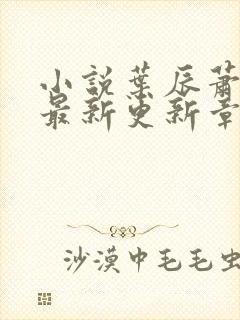 小說葉辰蕭
最新更新章
沙漠中毛毛虫